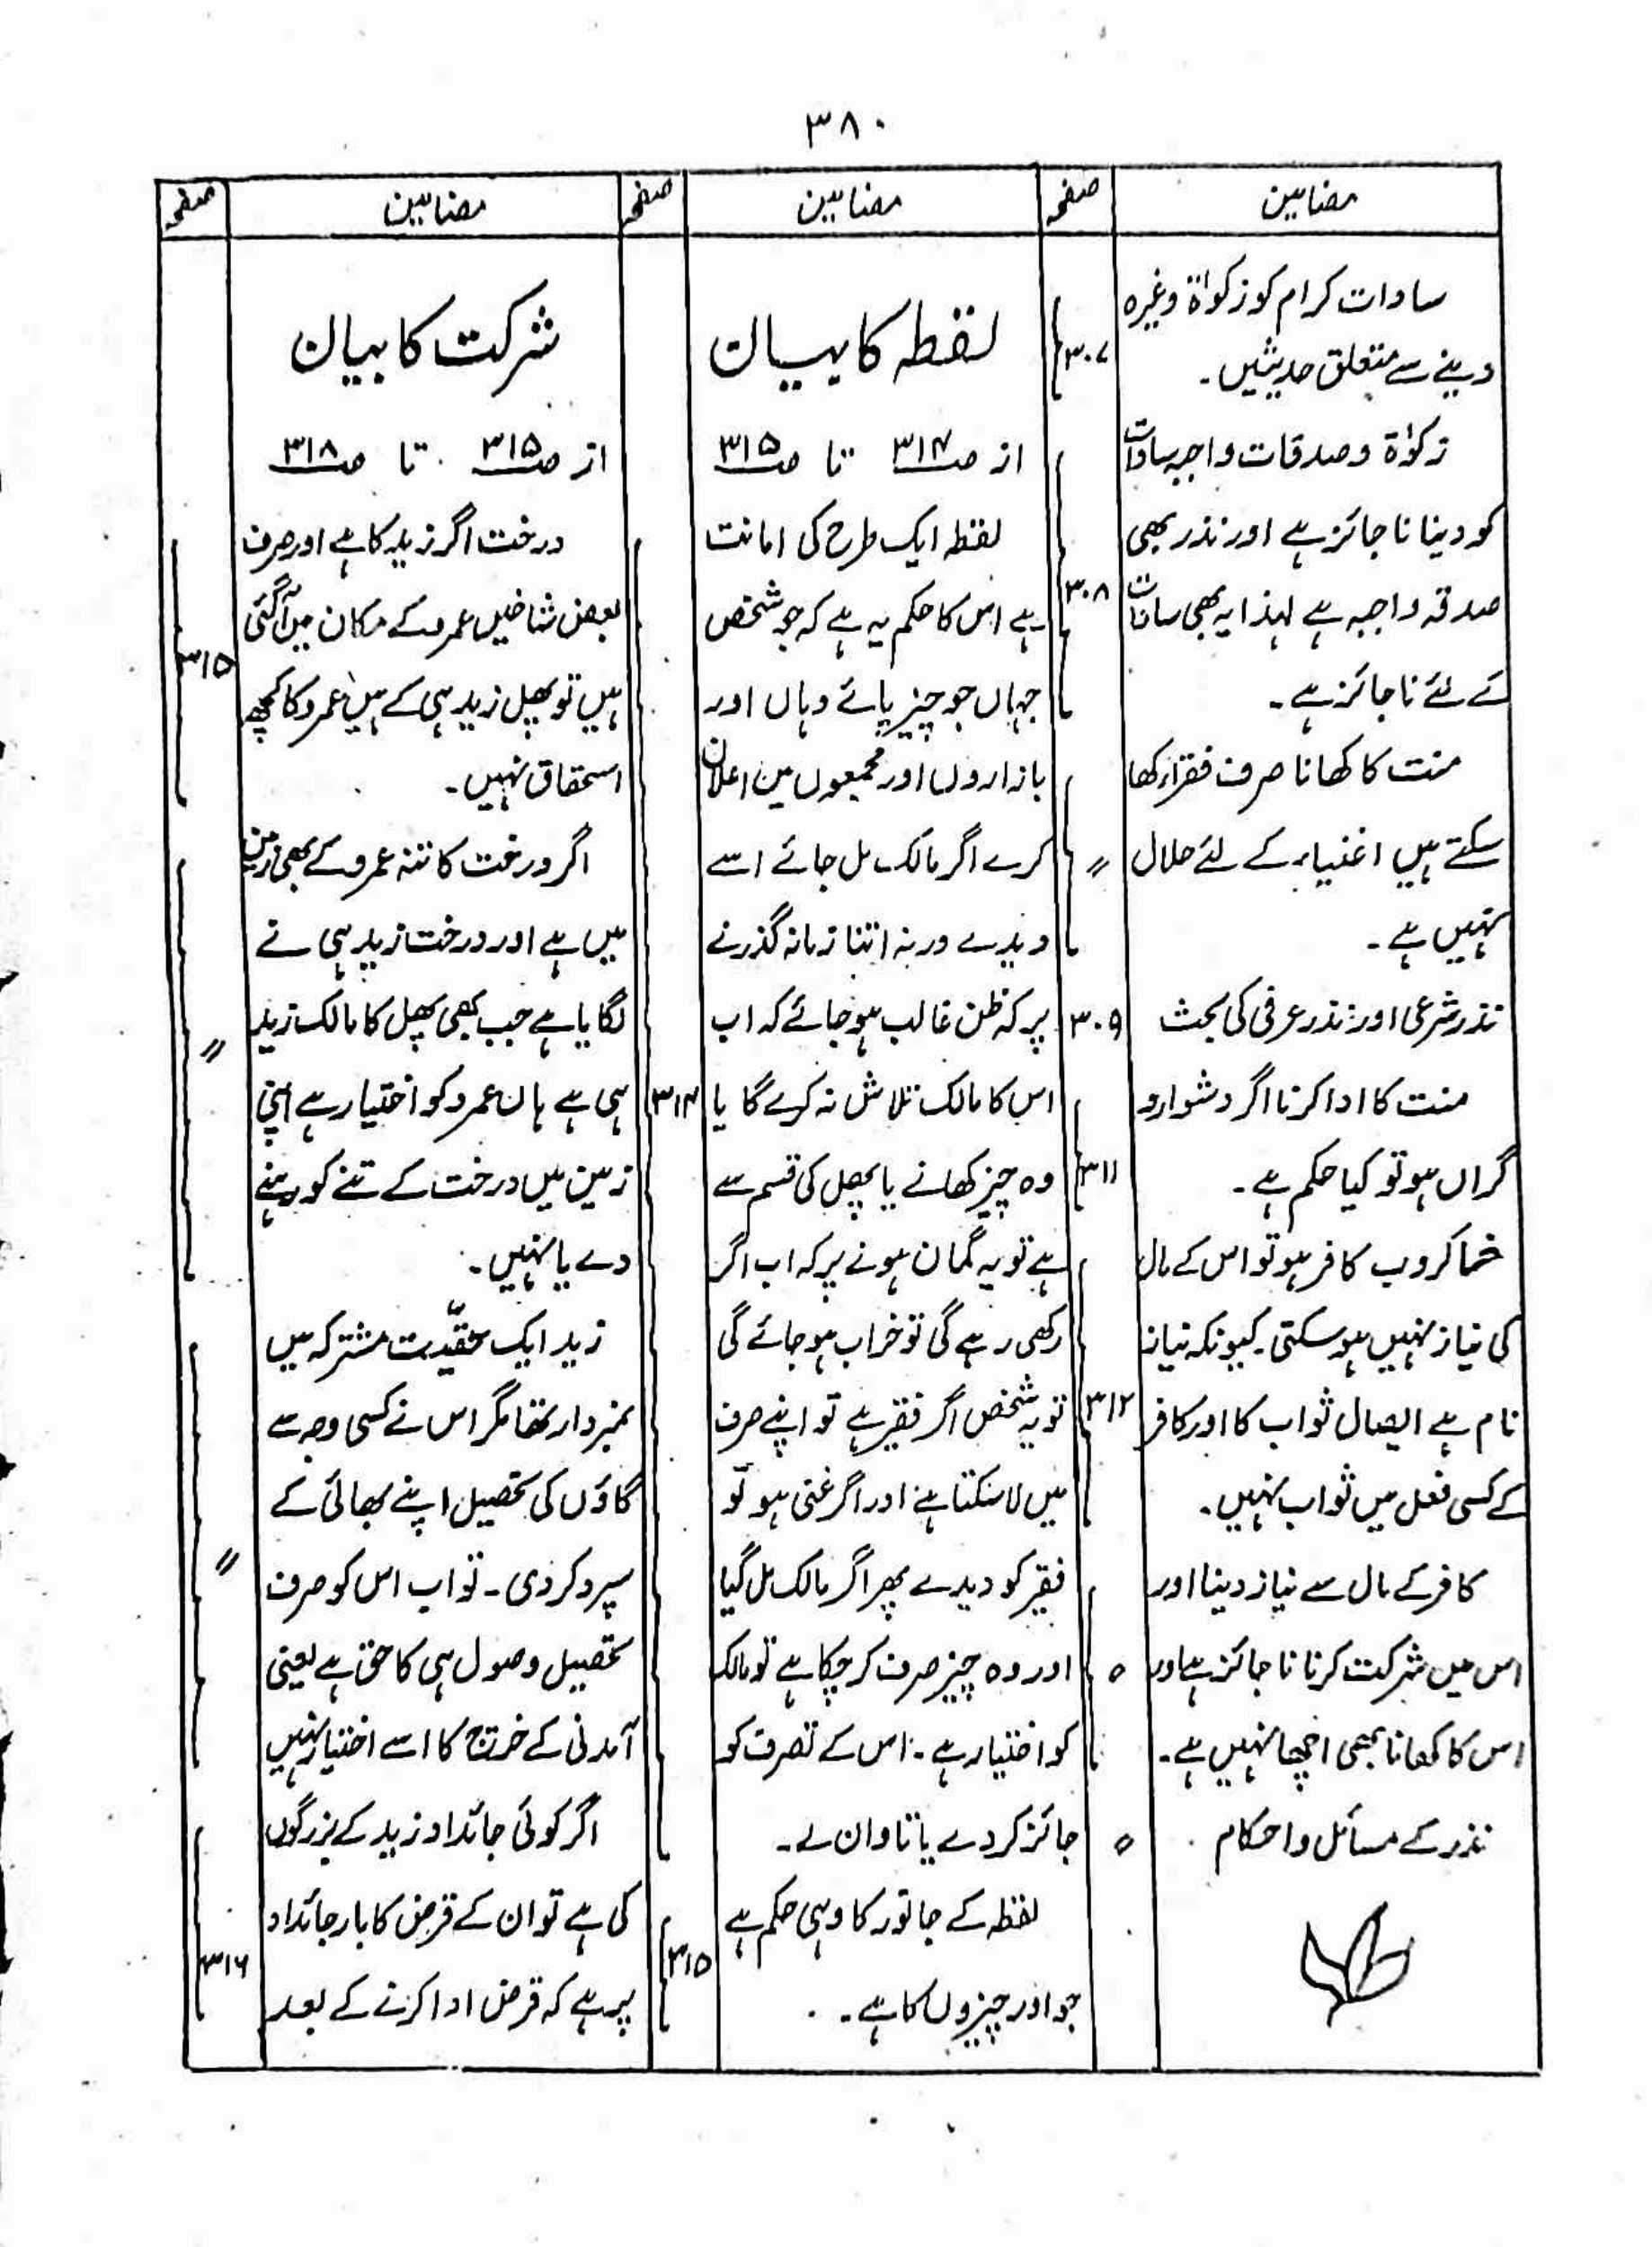 ۳۸۰
مضامین
صفحہ
سادات کرام کو زکواۃ وغیرہ
دینے سے متعلق حدیثیں۔
۳۰۷
زکوٰۃ و صدقات واجبہ سادات
کو دینا ناجائز ہے اور نذر بھی
صدقہ واجبہ ہے لہذا یہ بھی سادات
کے لئے ناجائز ہے۔
۳۰۸
منت کا کھانا صرف فقراء کھا
سکتے ہیں اغنیاء کے لئے حلال
نہیں ہے۔
〃
نذر شرعی اور نذر عرفی کی بحث
۳۰۹
منت کا ادا کرنا اگر دشوار و
گراں ہو تو کیا حکم ہے۔
۳۱۱
خاکروب کافر ہو تو اس کے مال
کی نیاز نہیں ہو سکتی۔ کیونکہ نیاز
نام ہے ایصال ثواب کا اور کافر
کے کسی فعل میں ثواب نہیں۔
۳۱۲
کافر کے مال سے نیاز دینا اور
اس میں شرکت کرنا ناجائز ہے اور
اس کا کھانا بھی اچھا نہیں ہے۔
〃
نذر کے مسائل و احکام
〃
مضامین
صفحہ
لقطہ کا بیان
از صـ ۳۱۴ تا صـ ۳۱۵
لقطہ ایک طرح کی امانت
ہے اس کا حکم یہ ہے کہ جو شخص
جہاں جو چیز پائے وہاں اور
بازاروں اور مجمعوں میں اعلان
کرے اگر مالک مل جائے اسے
دیدے ورنہ اتنا زمانہ گذرنے
پر کہ ظن غالب ہو جائے کہ اب
اس کا مالک تلاش نہ کرے گا یا
وہ چیز کھانے یا پھل کی قسم سے
ہے تو یہ گمان ہونے پر کہ اب اگر
رکھی رہے گی تو خراب ہو جائے گی
تو یہ شخص اگر فقیر ہے تو اپنے صرف
میں لا سکتا ہے اور اگر غنی ہو تو
فقیر کو دیدے پھر اگر مالک مل گیا
اور وہ چیز صرف کر چکا ہے تو مالک
کو اختیار ہے۔ اس کے تصرف کو
جائز کر دے یا تاوان لے۔
۳۱۴
لقطہ کے جانور کا وہی حکم ہے
جو اور چیزوں کا ہے۔
۳۱۵
مضامین
صفحہ
شرکت کا بیان
از صـ ۳۱۵ تا صـ ۳۱۸
درخت اگر زید کا ہے اور صرف
بعض شاخیں عمرو کے مکان میں آگئی
ہیں تو پھل زید ہی کے ہیں عمرو کا کچھ
استحقاق نہیں۔
۳۱۵
اگر درخت کا تنہ عمرو کے بھی زمین
میں ہے اور درخت زید ہی نے
لگایا ہے جب بھی پھل کا مالک زید
ہی ہے ہاں عمرو کو اختیار ہے اپنی
زمین میں درخت کے تنے کو رہنے
دے یا نہیں۔
〃
زید ایک حقیّت مشترکہ میں
نمبردار تھا مگر اس نے کسی وجہ سے
گاؤں کی تحصیل اپنے بھائی کے
سپرد کر دی۔ تو اب اس کو صرف
تحصیل وصول ہی کا حق ہے یعنی
آمدنی کے خرچ کا اسے اختیار نہیں
〃
اگر کوئی جائداد زید کے بزرگوں
کی ہے تو ان کے قرض کا بار جائداد
پر ہے کہ قرض ادا کرنے کے بعد
۳۱۶